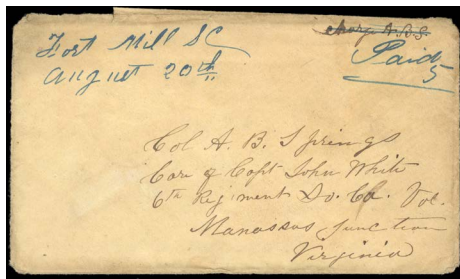 Fort Mill SC
August 20th
Charge A.B.S.
Paid
5
Col A. B. Springs
Care of Capt John White
6th Regiment So. Ca. Vol.
Manassas Junction
Virginia